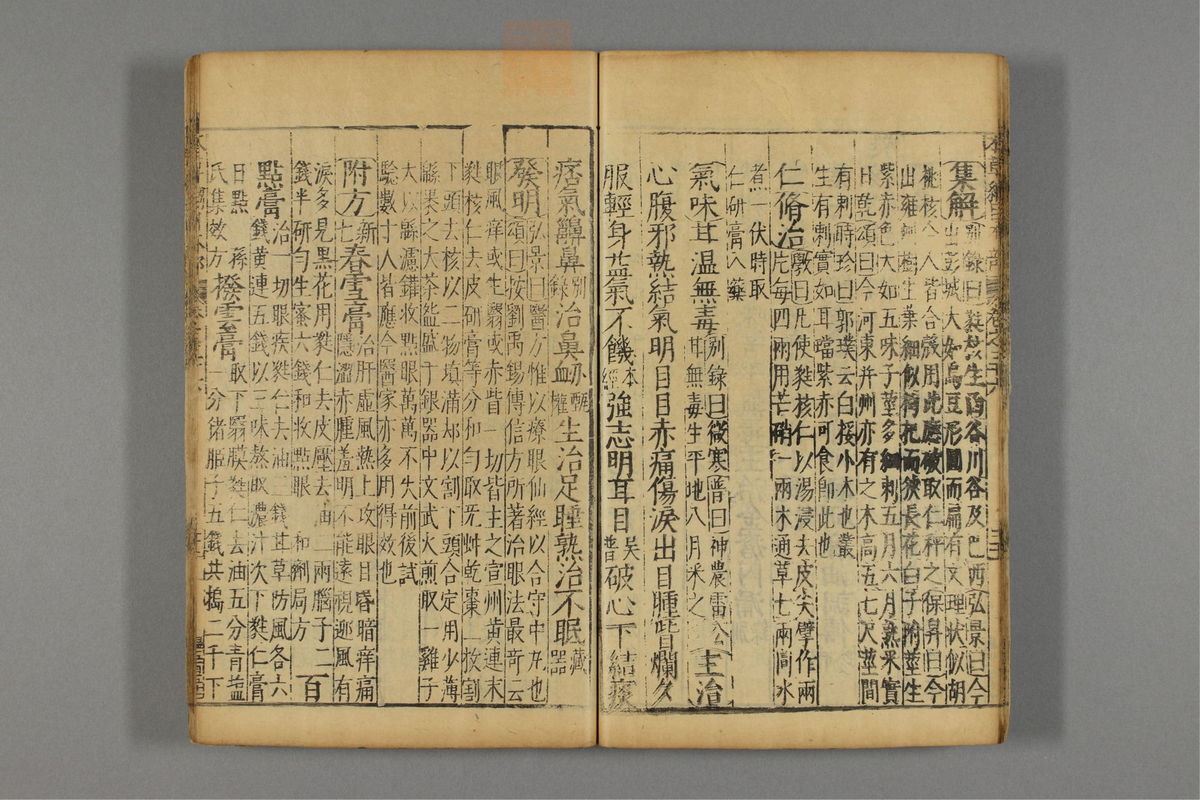 集解別錄曰蕤核生函谷川谷及巴西弘景曰今
出彭城大如烏豆形圓而扁有文理狀似胡
桃核今人皆合殼用此應破取仁秤之保昇曰今
出雍州樹生葉細似枸杞而狹長花白子附莖生
紫赤色大如五味子莖多細刺五月六月熟采實
日乾頌曰今河東并州亦有之木高五七尺莖間
有刺時珍曰郭璞云白桵小木也叢
生有刺實如耳璫紫赤可食即此也
仁脩治斅曰凡使蕤核仁以湯浸去皮尖擘作兩
片每四兩用芒硝一兩木通草七兩同水
煮一伏時取
仁研膏入藥
氣味甘溫無毒別錄曰微寒普曰神農雷公
甘無毒生平地八月采之主治
心腹邪熱結氣明目目赤痛傷淚出目腫眥爛久
服輕身益氣不饑本經強志明耳目吳普破心下結痰
痞氣齆鼻別錄治鼻衄甄權生治足睡熟治不眠藏器
發明弘景曰醫方惟以療眼仙經以合守中丸也
頌曰按劉禹錫傳信方所著治眼法最奇云
眼風痒或生翳或赤眥一切皆主之宣州黃連末
蕤核仁去皮研膏等分和勻取無蚛乾棗一枚割
下頭去核以二物填滿却以割下頭合定用少薄
緜裹之大茶盌盛于銀器中文武火煎取一雞子
大以緜濾罐收點眼萬萬不失前後試
驗數十人皆應今醫家亦多用得效也
附方新七春雪膏治肝虛風熱上攻眼目昏暗痒痛
隱澀赤腫羞明不能遠視迎風有
淚多見黑花用蕤仁去皮壓去油二兩腦子二
錢半研勻生蜜六錢和收點眼 和劑局方百
點膏治一切眼疾蕤仁去油三錢甘草防風各六
錢黃連五錢以三味熬取濃汁次下蕤仁膏
日點 孫氏集效方撥雲膏取下翳膜蕤仁去油五分青鹽
一分猪胰子五錢共搗二千下